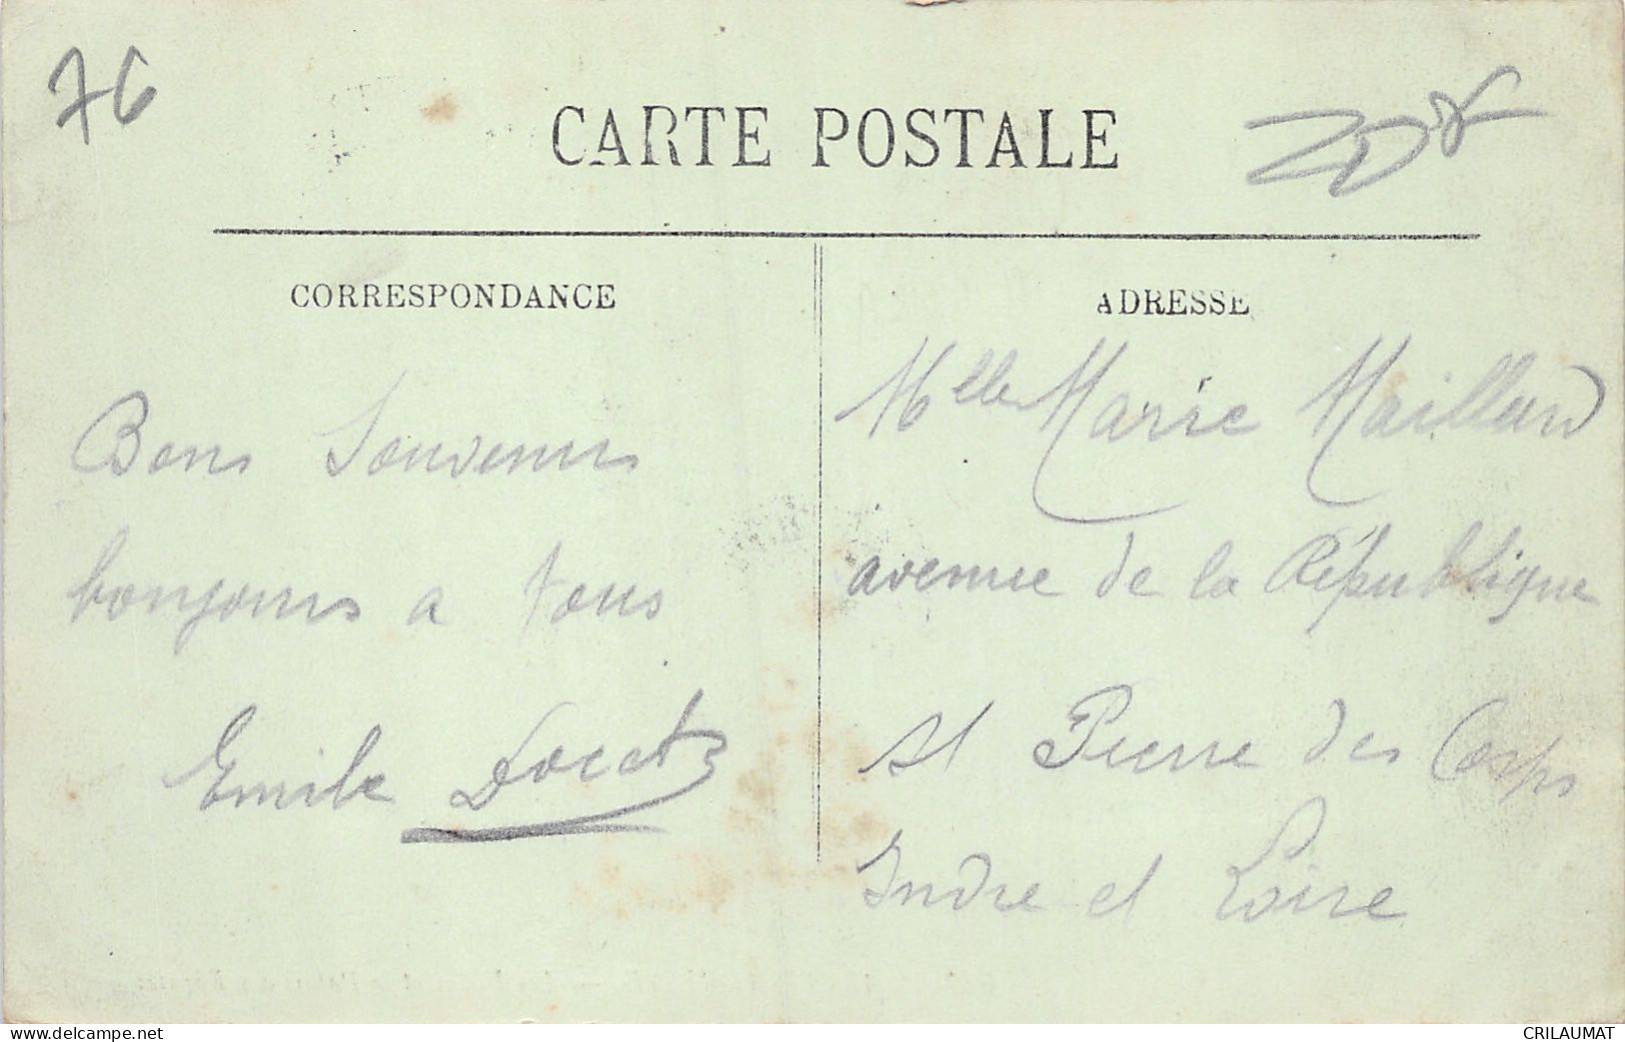 76
CARTE POSTALE
CORRESPONDANCE
Bons Souvenirs
bonjours a tous
Emile
ADRESSE
Mlle Marie Maillard
avenue de la République
st Pierre des Corps
Indre et Loire
www.delcampe.net
CRILAUMAT